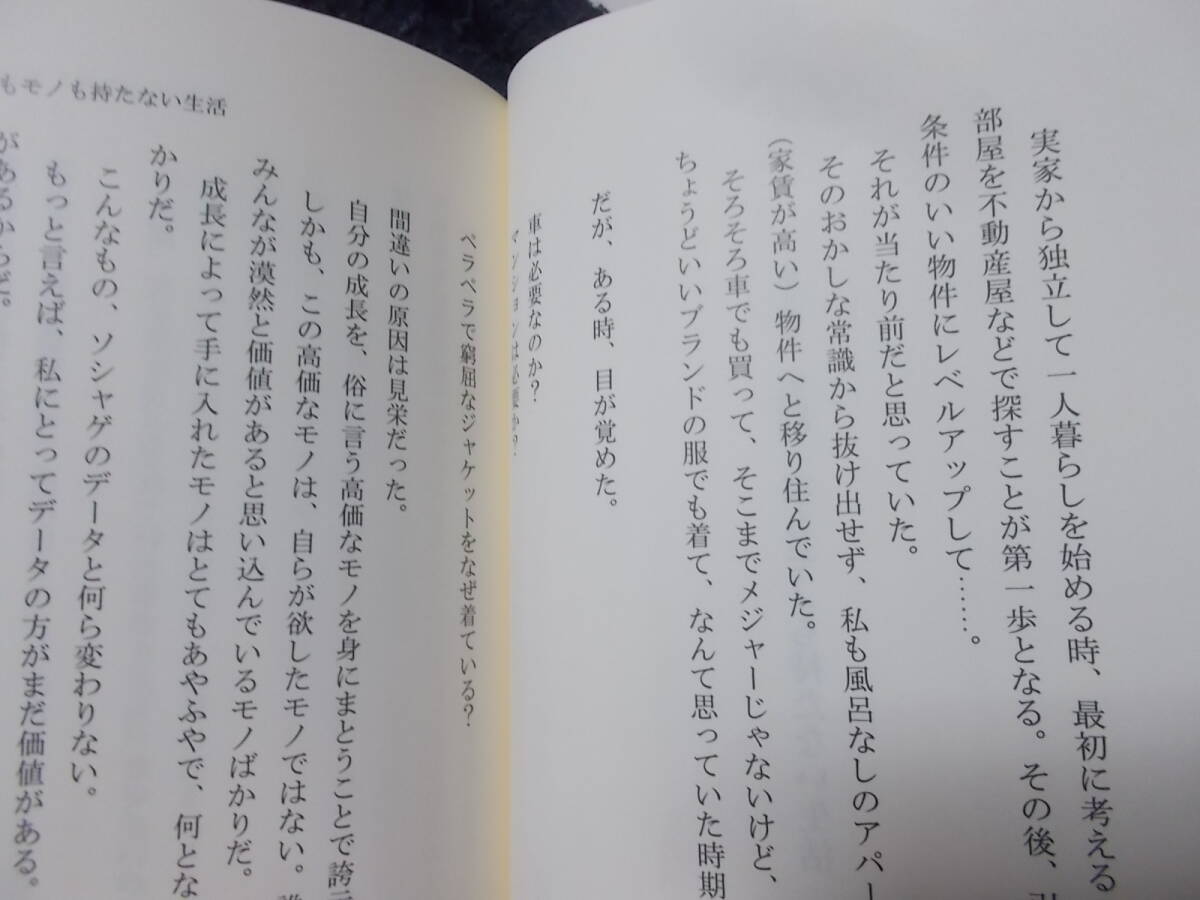 実家から独立して一人暮らしを始める時、最初に考える
部屋を不動産屋などで探すことが第一歩となる。その後、引
条件のいい物件にレベルアップして……。
それが当たり前だと思っていた。
そのおかしな常識から抜け出せず、私も風呂なしのアパー
(家賃が高い)物件へと移り住んでいた。
そろそろ車でも買って、そこまでメジャーじゃないけど、
ちょうどいいブランドの服でも着て、なんて思っていた時期
だが、ある時、目が覚めた。
車は必要なのか?
マンションは必要か?
ペラペラで窮屈なジャケットをなぜ着ている?
間違いの原因は見栄だった。
自分の成長を、俗に言う高価なモノを身にまとうことで誇示
しかも、この高価なモノは、自らが欲したモノではない。誰
みんなが漠然と価値があると思い込んでいるモノばかりだ。
成長によって手に入れたモノはとてもあやふやで、何とな
かりだ。
こんなもの、ソシャゲのデータと何ら変わりない。
もっと言えば、私にとってデータの方がまだ価値がある。
があるからだ。
もモノも持たない生活